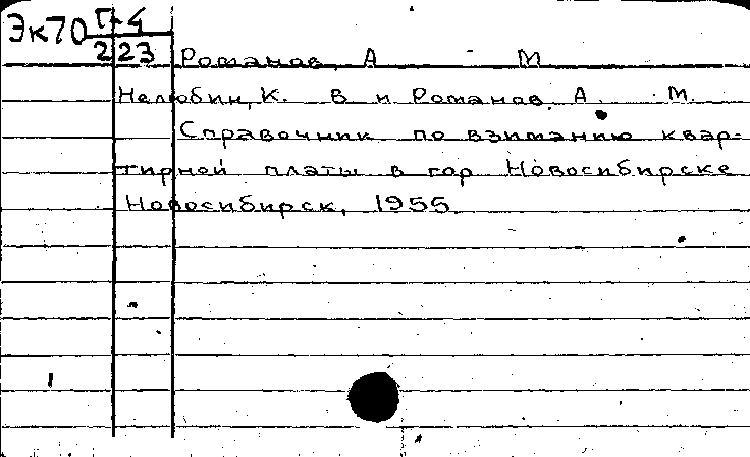 Эк70 Г-4
223
Романов, А М
Нелюбин, К. В и Романов, А. М.
Справочник по взиманию квар-
тирной платы в гор Новосибирске
Новосибирск, 1955